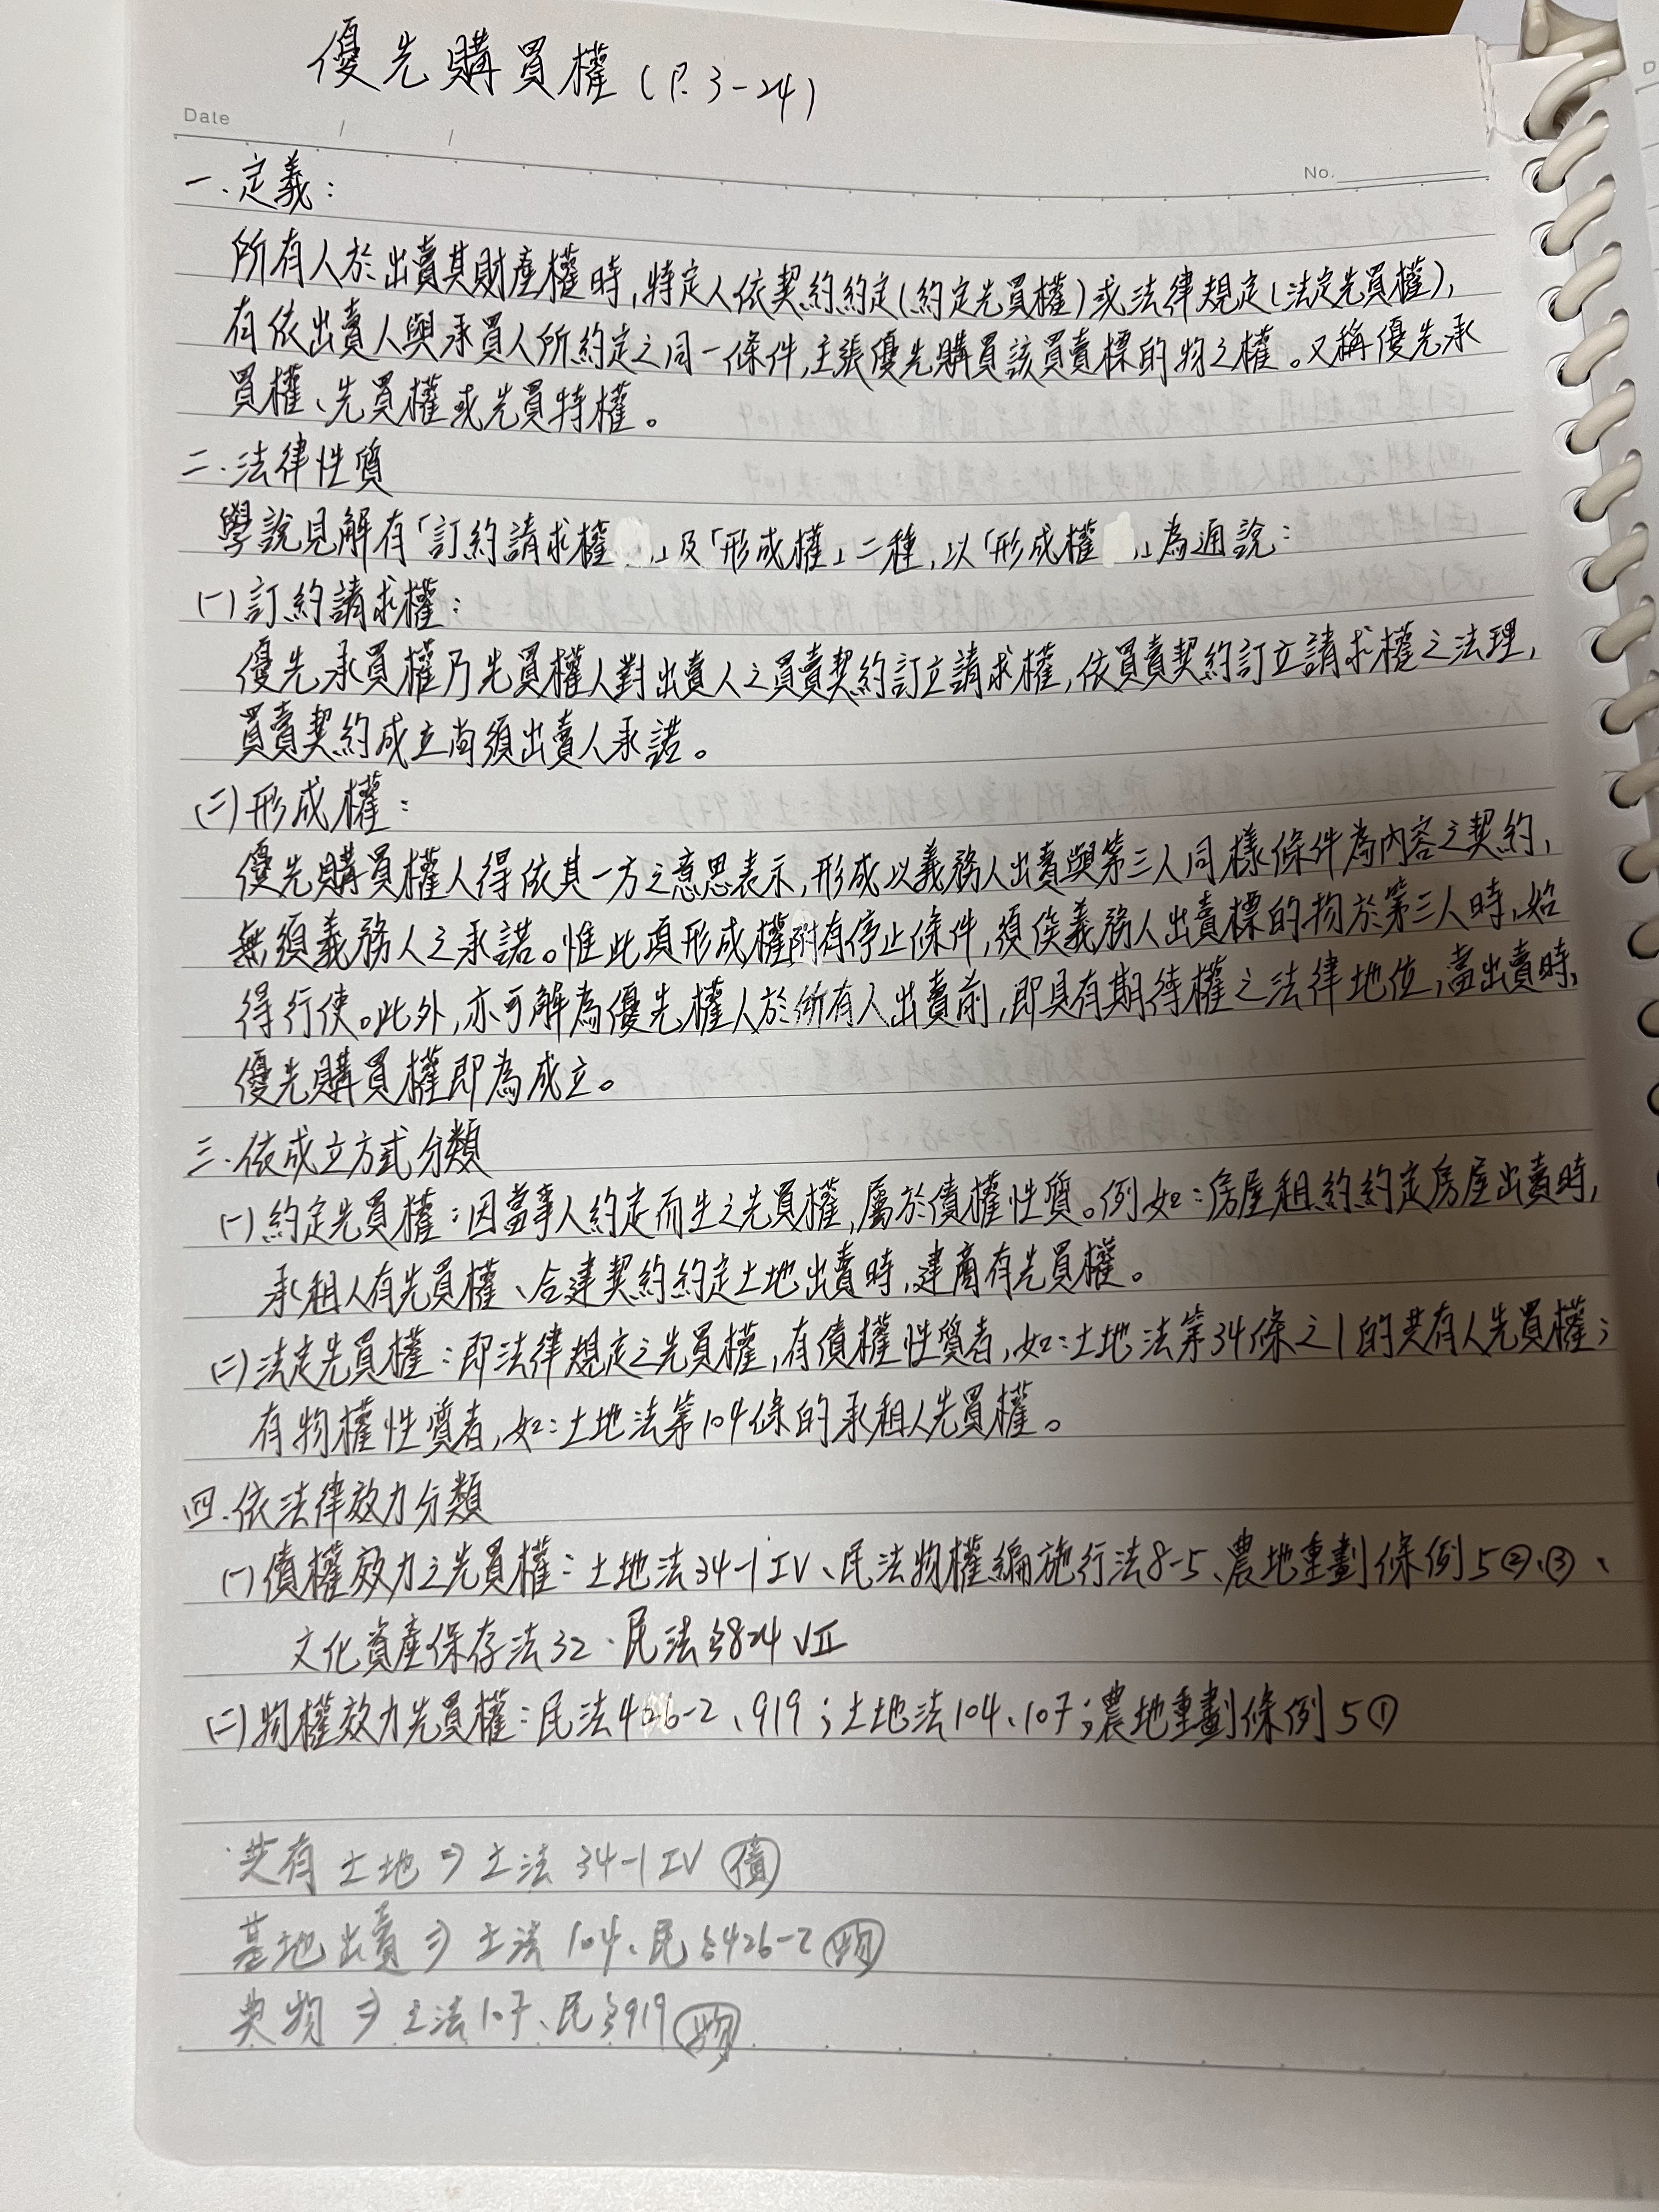 優先購買權(P.3-24)
Date / /
No.
一.定義:
所有人於出賣其財產權時,特定人依契約約定(約定先買權)或法律規定(法定先買權),
有依出賣人與承買人所約定之同一條件,主張優先購買該買賣標的物之權。又稱優先承
買權、先買權或先買特權。
二.法律性質
學說見解有「訂約請求權」及「形成權」二種,以「形成權」為通說:
(一)訂約請求權:
優先承買權乃先買權人對出賣人之買賣契約訂立請求權,依買賣契約訂立請求權之法理,
買賣契約成立尚須出賣人承諾。
(二)形成權:
優先購買權人得依其一方之意思表示,形成以義務人出賣與第三人同樣條件為內容之契約,
無須義務人之承諾。惟此項形成權附有停止條件,須俟義務人出賣標的物於第三人時,始
得行使。此外,亦可解為優先權人於所有人出賣前,即具有期待權之法律地位,當出賣時,
優先購買權即為成立。
三.依成立方式分類
(一)約定先買權:因當事人約定而生之先買權,屬於債權性質。例如:房屋租約約定房屋出賣時,
承租人有先買權、合建契約約定土地出賣時,建商有先買權。
(二)法定先買權:即法律規定之先買權,有債權性質者,如:土地法第34條之1的共有人先買權;
有物權性質者,如:土地法第104條的承租人先買權。
四.依法律效力分類
(一)債權效力之先買權:土地法34-1IV、民法物權編施行法8-5、農地重劃條例5②、③、
文化資產保存法32.民法§824VII
(二)物權效力先買權:民法426-2、919;土地法104、107;農地重劃條例5①
共有土地⇒土法34-1IV 債
基地出賣⇒土法104、民§426-2 物
典物⇒土法107、民§919 物